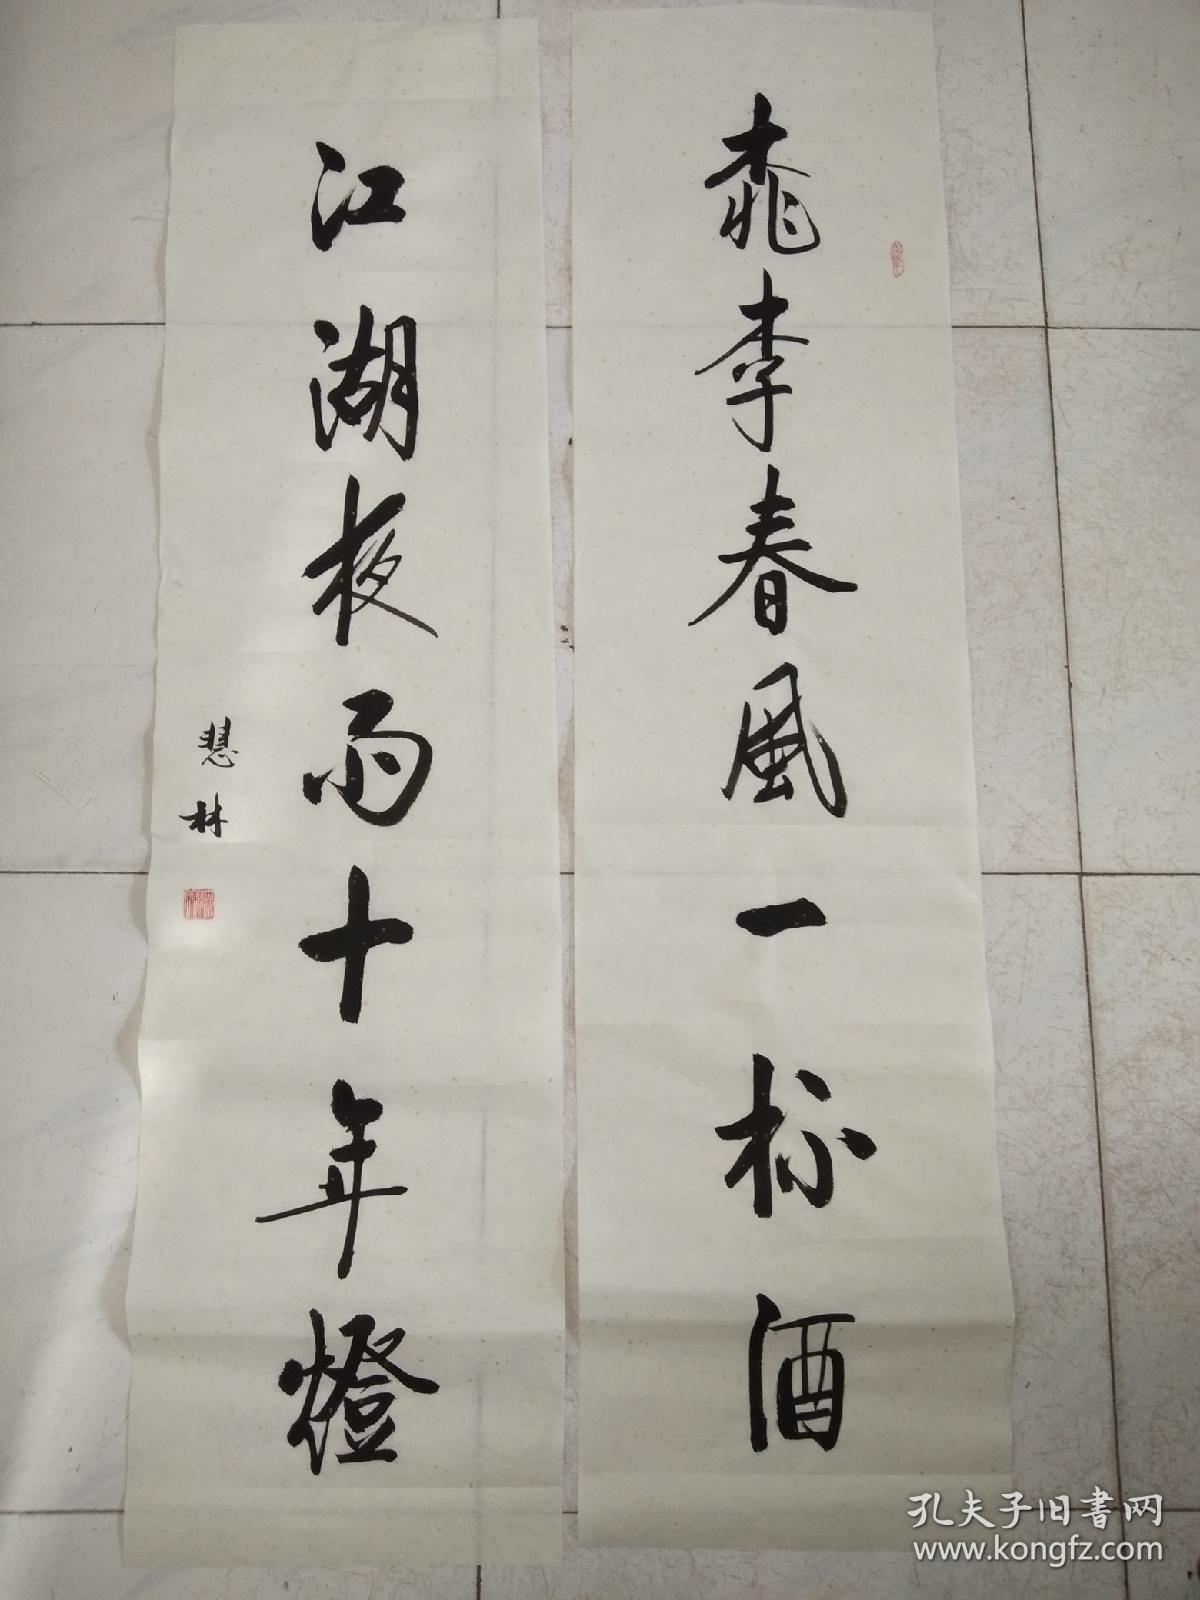 桃李春風一杯酒
江湖夜雨十年燈
慧林
孔夫子旧书网
www.kongfz.com